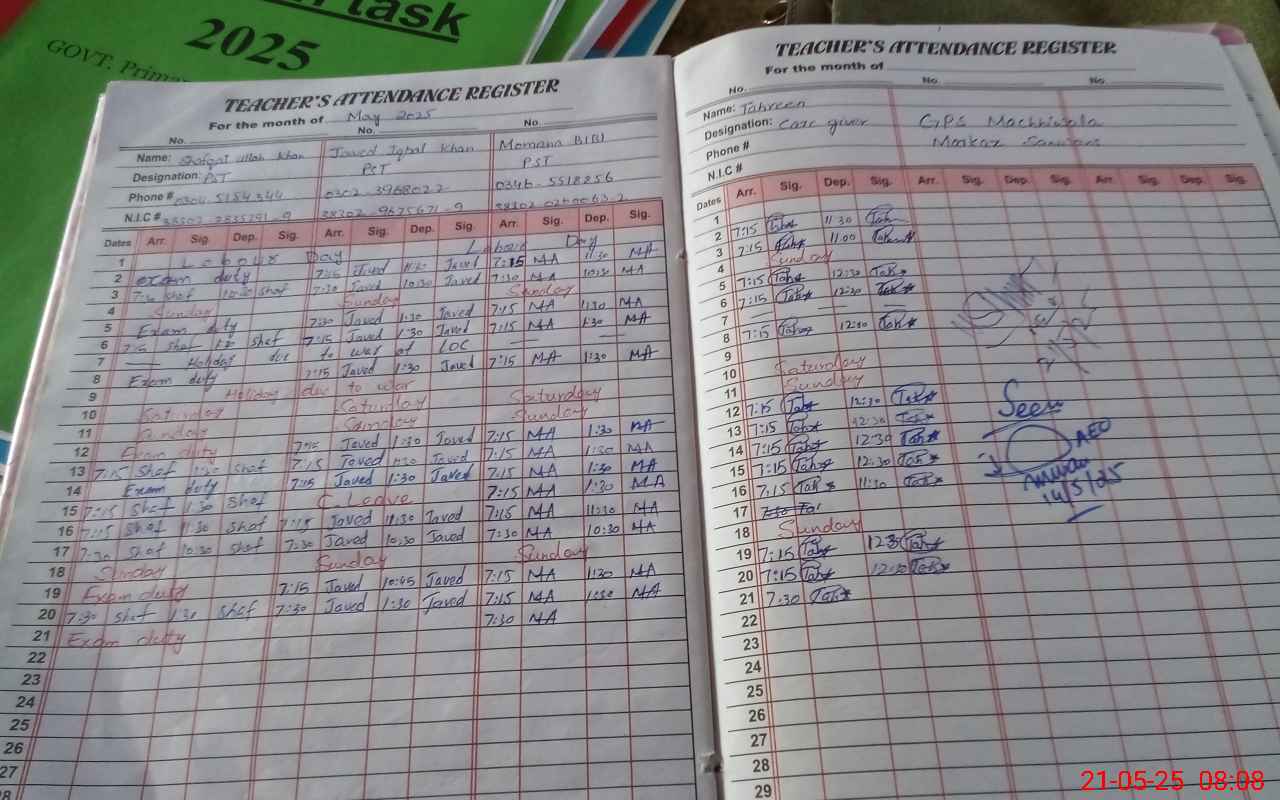 task
2025
GOVT. Prima
TEACHER'S ATTENDANCE REGISTER
For the month of May 2025
No. No. No.
Name: Shafqat ullah khan Javed Iqbal khan Momana BIBI
Designation: PST PST PST
Phone # 0302-3968022 0346-5518256
N.I.C #
Dates Arr. Sig. Dep. Sig. Arr. Sig. Dep. Sig. Arr. Sig. Dep. Sig.
1 Labour Day Labour Day
2 exam duty 7:15 Javed 11:30 Javed 7:15 MA 11:30 MA
3 7:30 Shaf 10:30 Shaf 7:30 Javed 10:30 Javed 7:30 MA 10:30 MA
4 Sunday Sunday Sunday
5 Exam duty 7:30 Javed 1:30 Javed 7:15 MA 1:30 MA
6 7:15 Shaf 1:30 Shaf 7:15 Javed 1:30 Javed 7:15 MA 1:30 MA
7 Holiday due to war at LOC
8 Exam duty 7:15 Javed 1:30 Javed 7:15 MA 1:30 MA
9 Holiday due to war
10 Saturday Saturday Saturday
11 Sunday Sunday Sunday
12 Exam duty 7:15 Javed 1:30 Javed 7:15 MA 1:30 MA
13 7:15 Shaf 1:30 Shaf 7:15 Javed 1:30 Javed 7:15 MA 1:30 MA
14 Exam duty 7:15 Javed 1:30 Javed 7:15 MA 1:30 MA
15 7:15 Shaf 1:30 Shaf C Leave 7:15 MA 1:30 MA
16 7:15 Shaf 11:30 Shaf 7:15 Javed 11:30 Javed 7:15 MA 11:30 MA
17 7:30 Shaf 10:30 Shaf 7:30 Javed 10:30 Javed 7:30 MA 10:30 MA
18 Sunday Sunday Sunday
19 Exam duty 7:15 Javed 10:45 Javed 7:15 MA 1:30 MA
20 7:30 Shaf 1:30 Shaf 7:30 Javed 1:30 Javed 7:15 MA 1:30 MA
21 Exam duty 7:30 MA
22
23
24
25
26
27
28
TEACHER'S ATTENDANCE REGISTER
For the month of
No. No. No.
Name: Tahreen
Designation: Care giver GPS Machhiwala
Phone # Markaz
N.I.C #
Dates Arr. Sig. Dep. Sig. Arr. Sig. Dep. Sig. Arr. Sig. Dep. Sig.
1
2 7:15 Tah 11:30 Tah
3 7:15 Tah 11:00 Tah
4 Sunday
5 7:15 Tah 12:30 Tah
6 7:15 Tah 12:30 Tah
7
8 7:15 Tah 12:30 Tah
9
10 Saturday
11 Sunday
12 7:15 Tah 12:30 Tah
13 7:15 Tah 12:30 Tah
14 7:15 Tah 12:30 Tah
15 7:15 Tah 12:30 Tah
16 7:15 Tah 11:30 Tah
17
18 Sunday
19 7:15 Tah 12:3 Tah
20 7:15 Tah 12:30 Tah
21 7:30 Tah
22
23
24
25
26
27
28
29
Seen
AEO
14/5/25
21-05-25 08:08